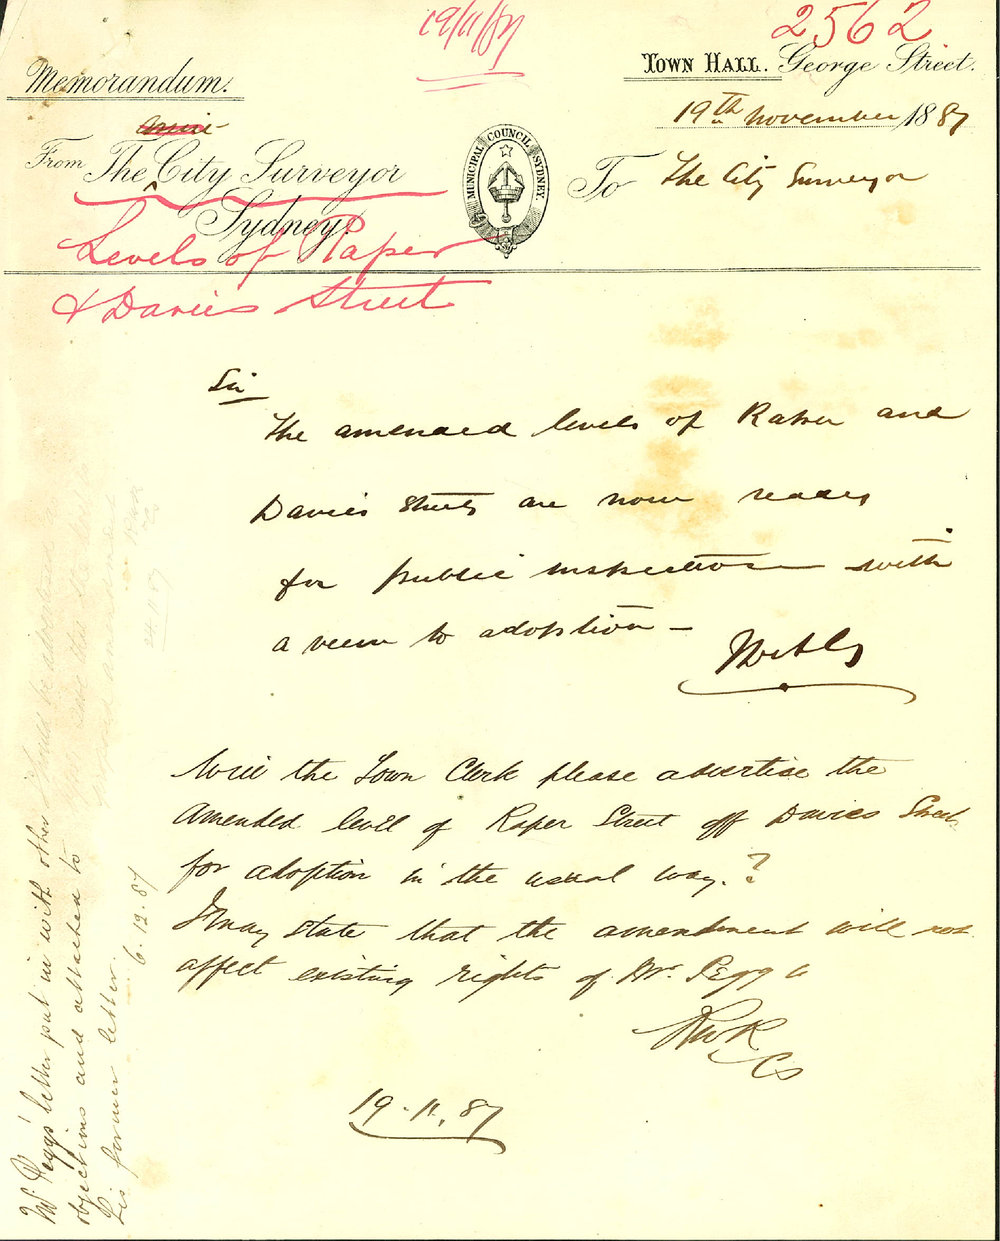 19/11/87
2562
Memorandum.
TOWN HALL. George Street.
19th November 1887
From The City Surveyor
Sydney.
MUNICIPAL COUNCIL SYDNEY
To The City Surveyor
Levels of Raper
& Davies Street
Sir
The amended levels of Raper and
Davies Streets are now ready
for public inspection with
a view to adoption –
Will the Town Clerk please advertise the
amended level of Raper Street off Davies Street
for adoption in the usual way.?
I may state that the amendment will not
affect existing rights of Mr Pegg
RWR
CS
19.11.87
Mr Pegg's letter put in with other
objections and attached to
his former letter.
6.12.87
should be advertised
amendment
24.11.87